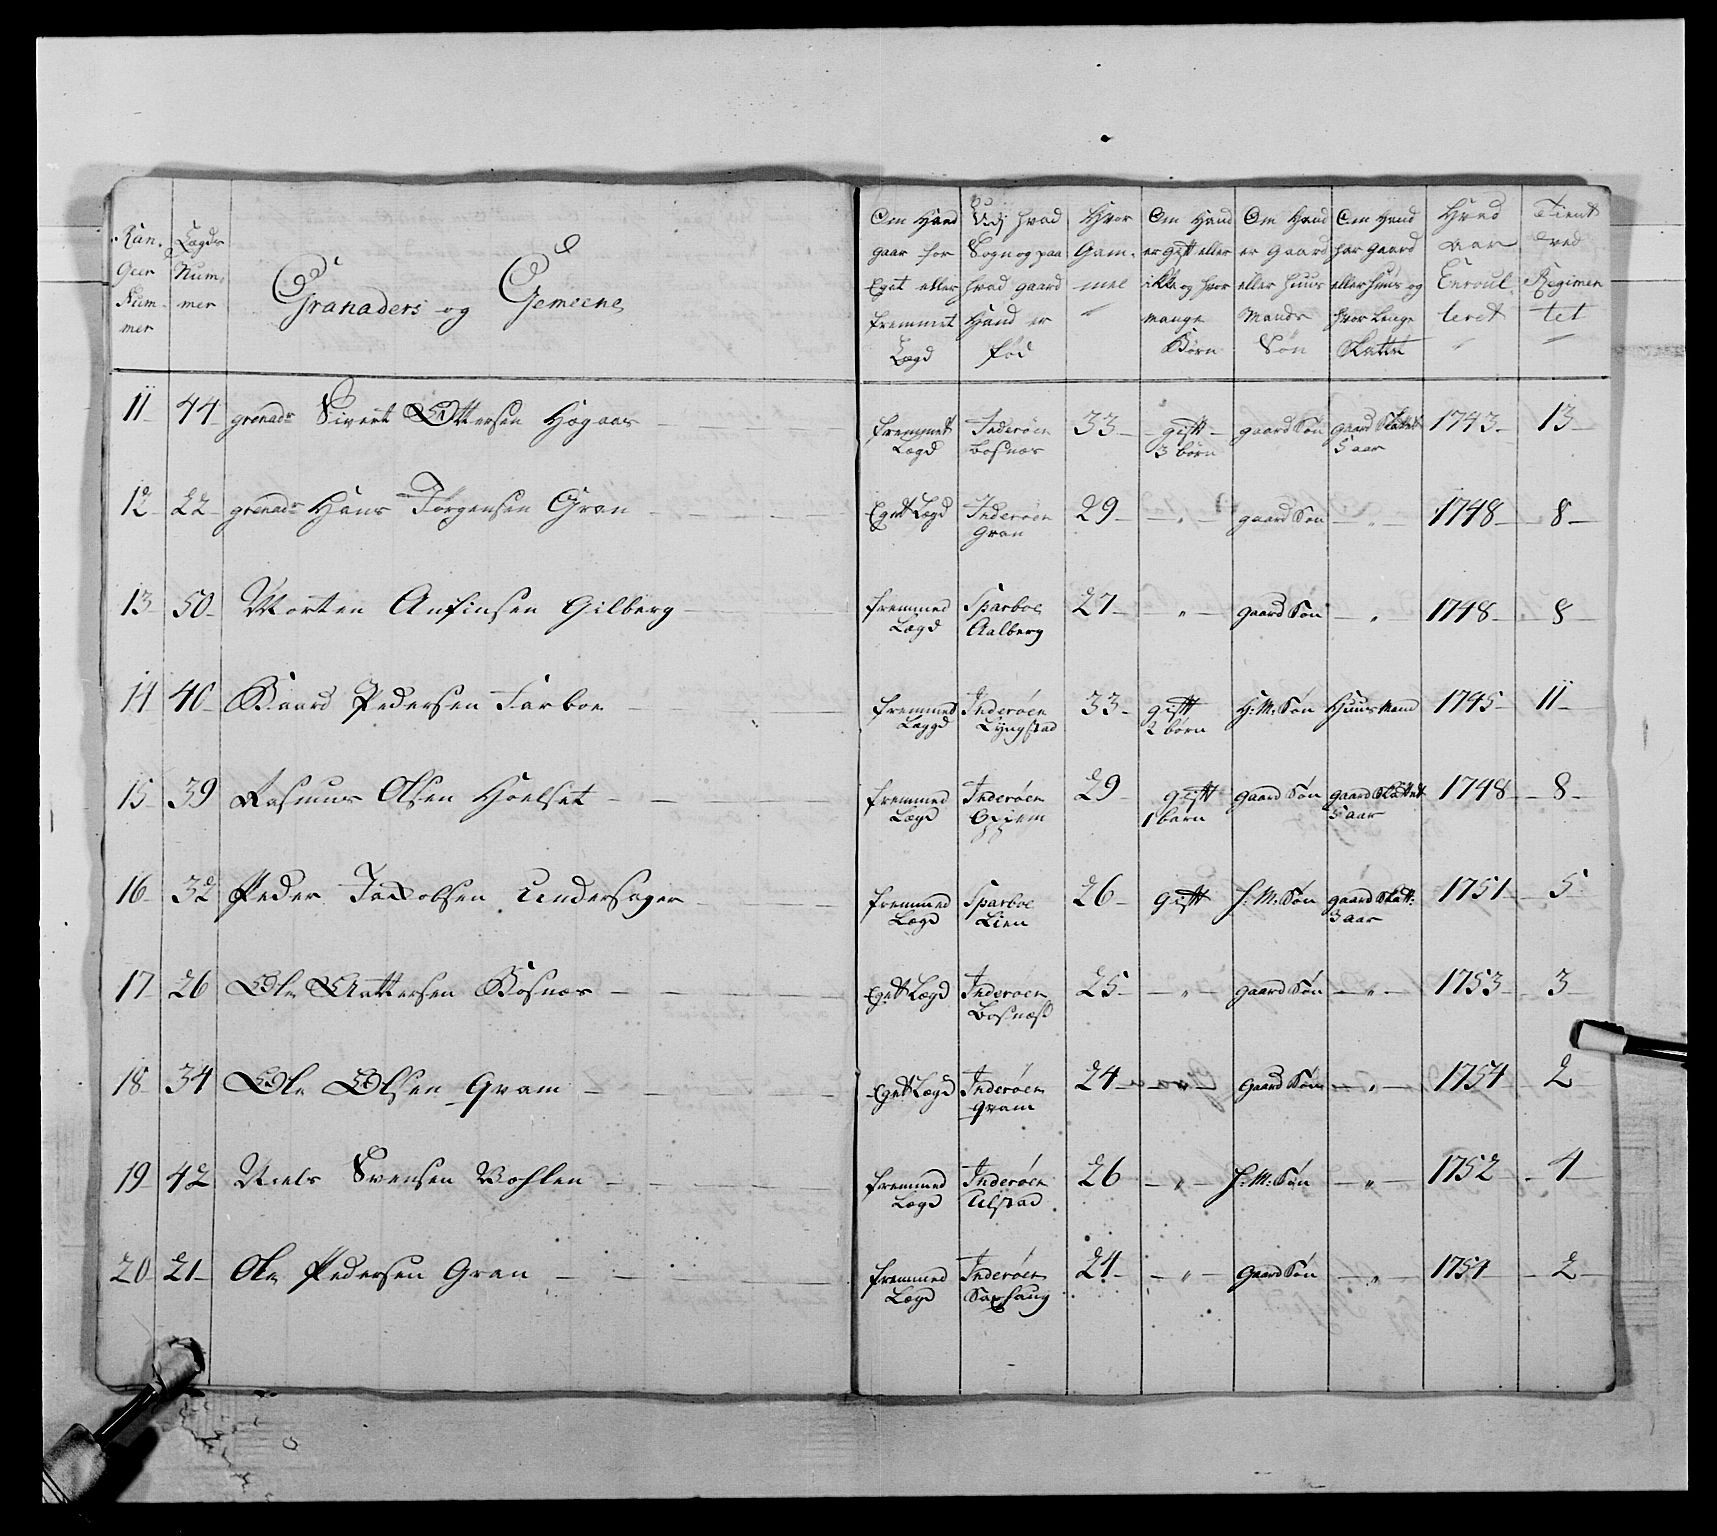 Ran. Geer Num- mer | Lægds Num- mer | Granaders og Gemeene | Om Hand gaar for Eget eller fremmet Lægd | Udj hvad Sogn og paa hvad gaard Hand er fød | Hvor Gam- mel | Om Hand er gift eller ikke og hvor mange Børn | Om Hand er Gaard eller Huus Mands Søn | Om Hand har Gaard eller huus og hvor lenge Skattet | Hvad aar Enroul- leret | Tient ved Regimen tet
11 | 44 | grenadr Sivert Ottersen Hogaas | fremmet Lægd | Inderøen Bosnæs | 33 | gift 3 børn | gaard Søn | gaard Skattet 5 aar | 1743 | 13
12 | 22 | grenadr Hans Jørgensen Gran | Eget Lægd | Inderøen Gran | 29 | " | gaard Søn | " | 1748 | 8
13 | 50 | Morten Anfinsen Gilberg | fremmed Lægd | Sparboe Aalberg | 27 | " | gaard Søn | " | 1748 | 8
14 | 40 | Baard Pedersen Farboe | fremmed Lægd | Inderøen Lyngstad | 33 | gift 2 børn | H: M: Søn | Huus Mand | 1745 | 11
15 | 39 | Rasmus Olsen Hoelset | fremmed Lægd | Inderøen | 29 | gift 1 barn | gaard Søn | gaard Skattet 5 aar | 1748 | 8
16 | 32 | Peder Jacobsen Undersager | fremmed Lægd | Sparboe Lien | 26 | gift | H: M: Søn | gaard Skatt: 3 aar | 1751 | 5
17 | 26 | Ole Aattersen Bosnæs | Eget Lægd | Inderøen Bosnæs | 25 | " | gaard Søn | " | 1753 | 3
18 | 34 | Ole Olsen Gram | Eget Lægd | Inderøen Gram | 24 | " | Gaard Søn | " | 1754 | 2
19 | 42 | Niels Svensen Vohlen | fremmed Lægd | Inderøen Ulstad | 26 | " | H: M: Søn | " | 1752 | 4
20 | 21 | Ole Pedersen Gran | fremmed Lægd | Inderøen Saxhaug | 24 | " | Gaard Søn | " | 1754 | 2